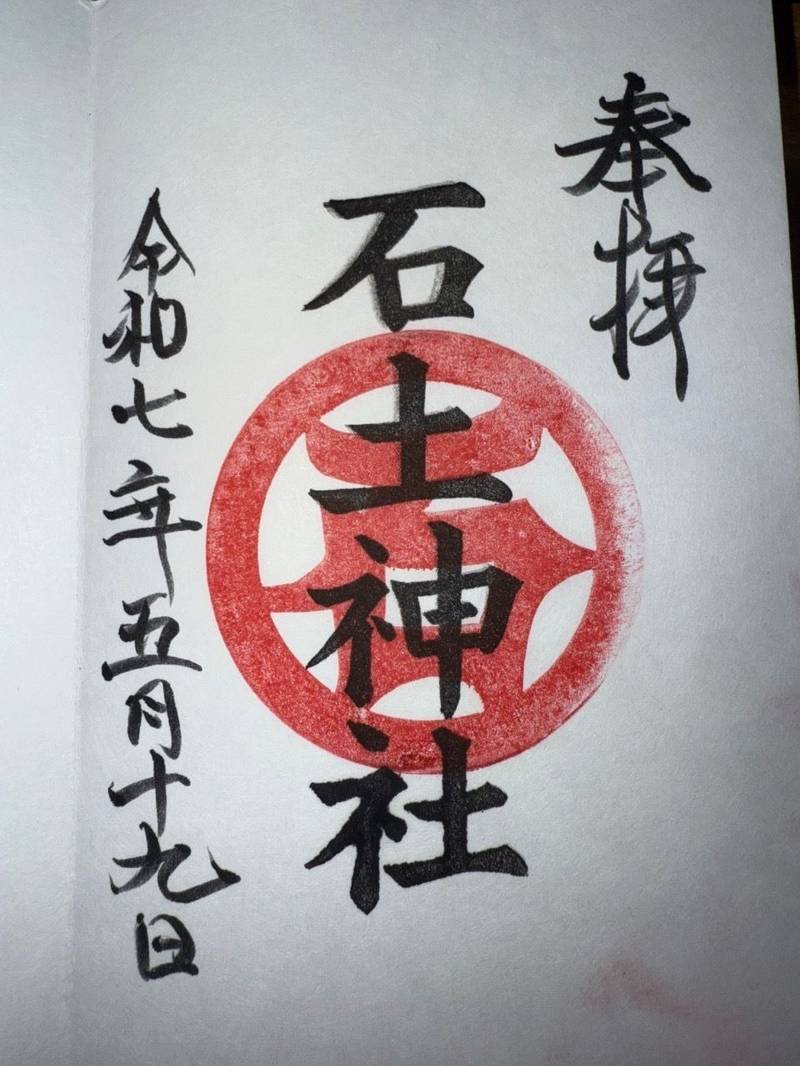 奉拝
石土神社
令和七年五月十九日